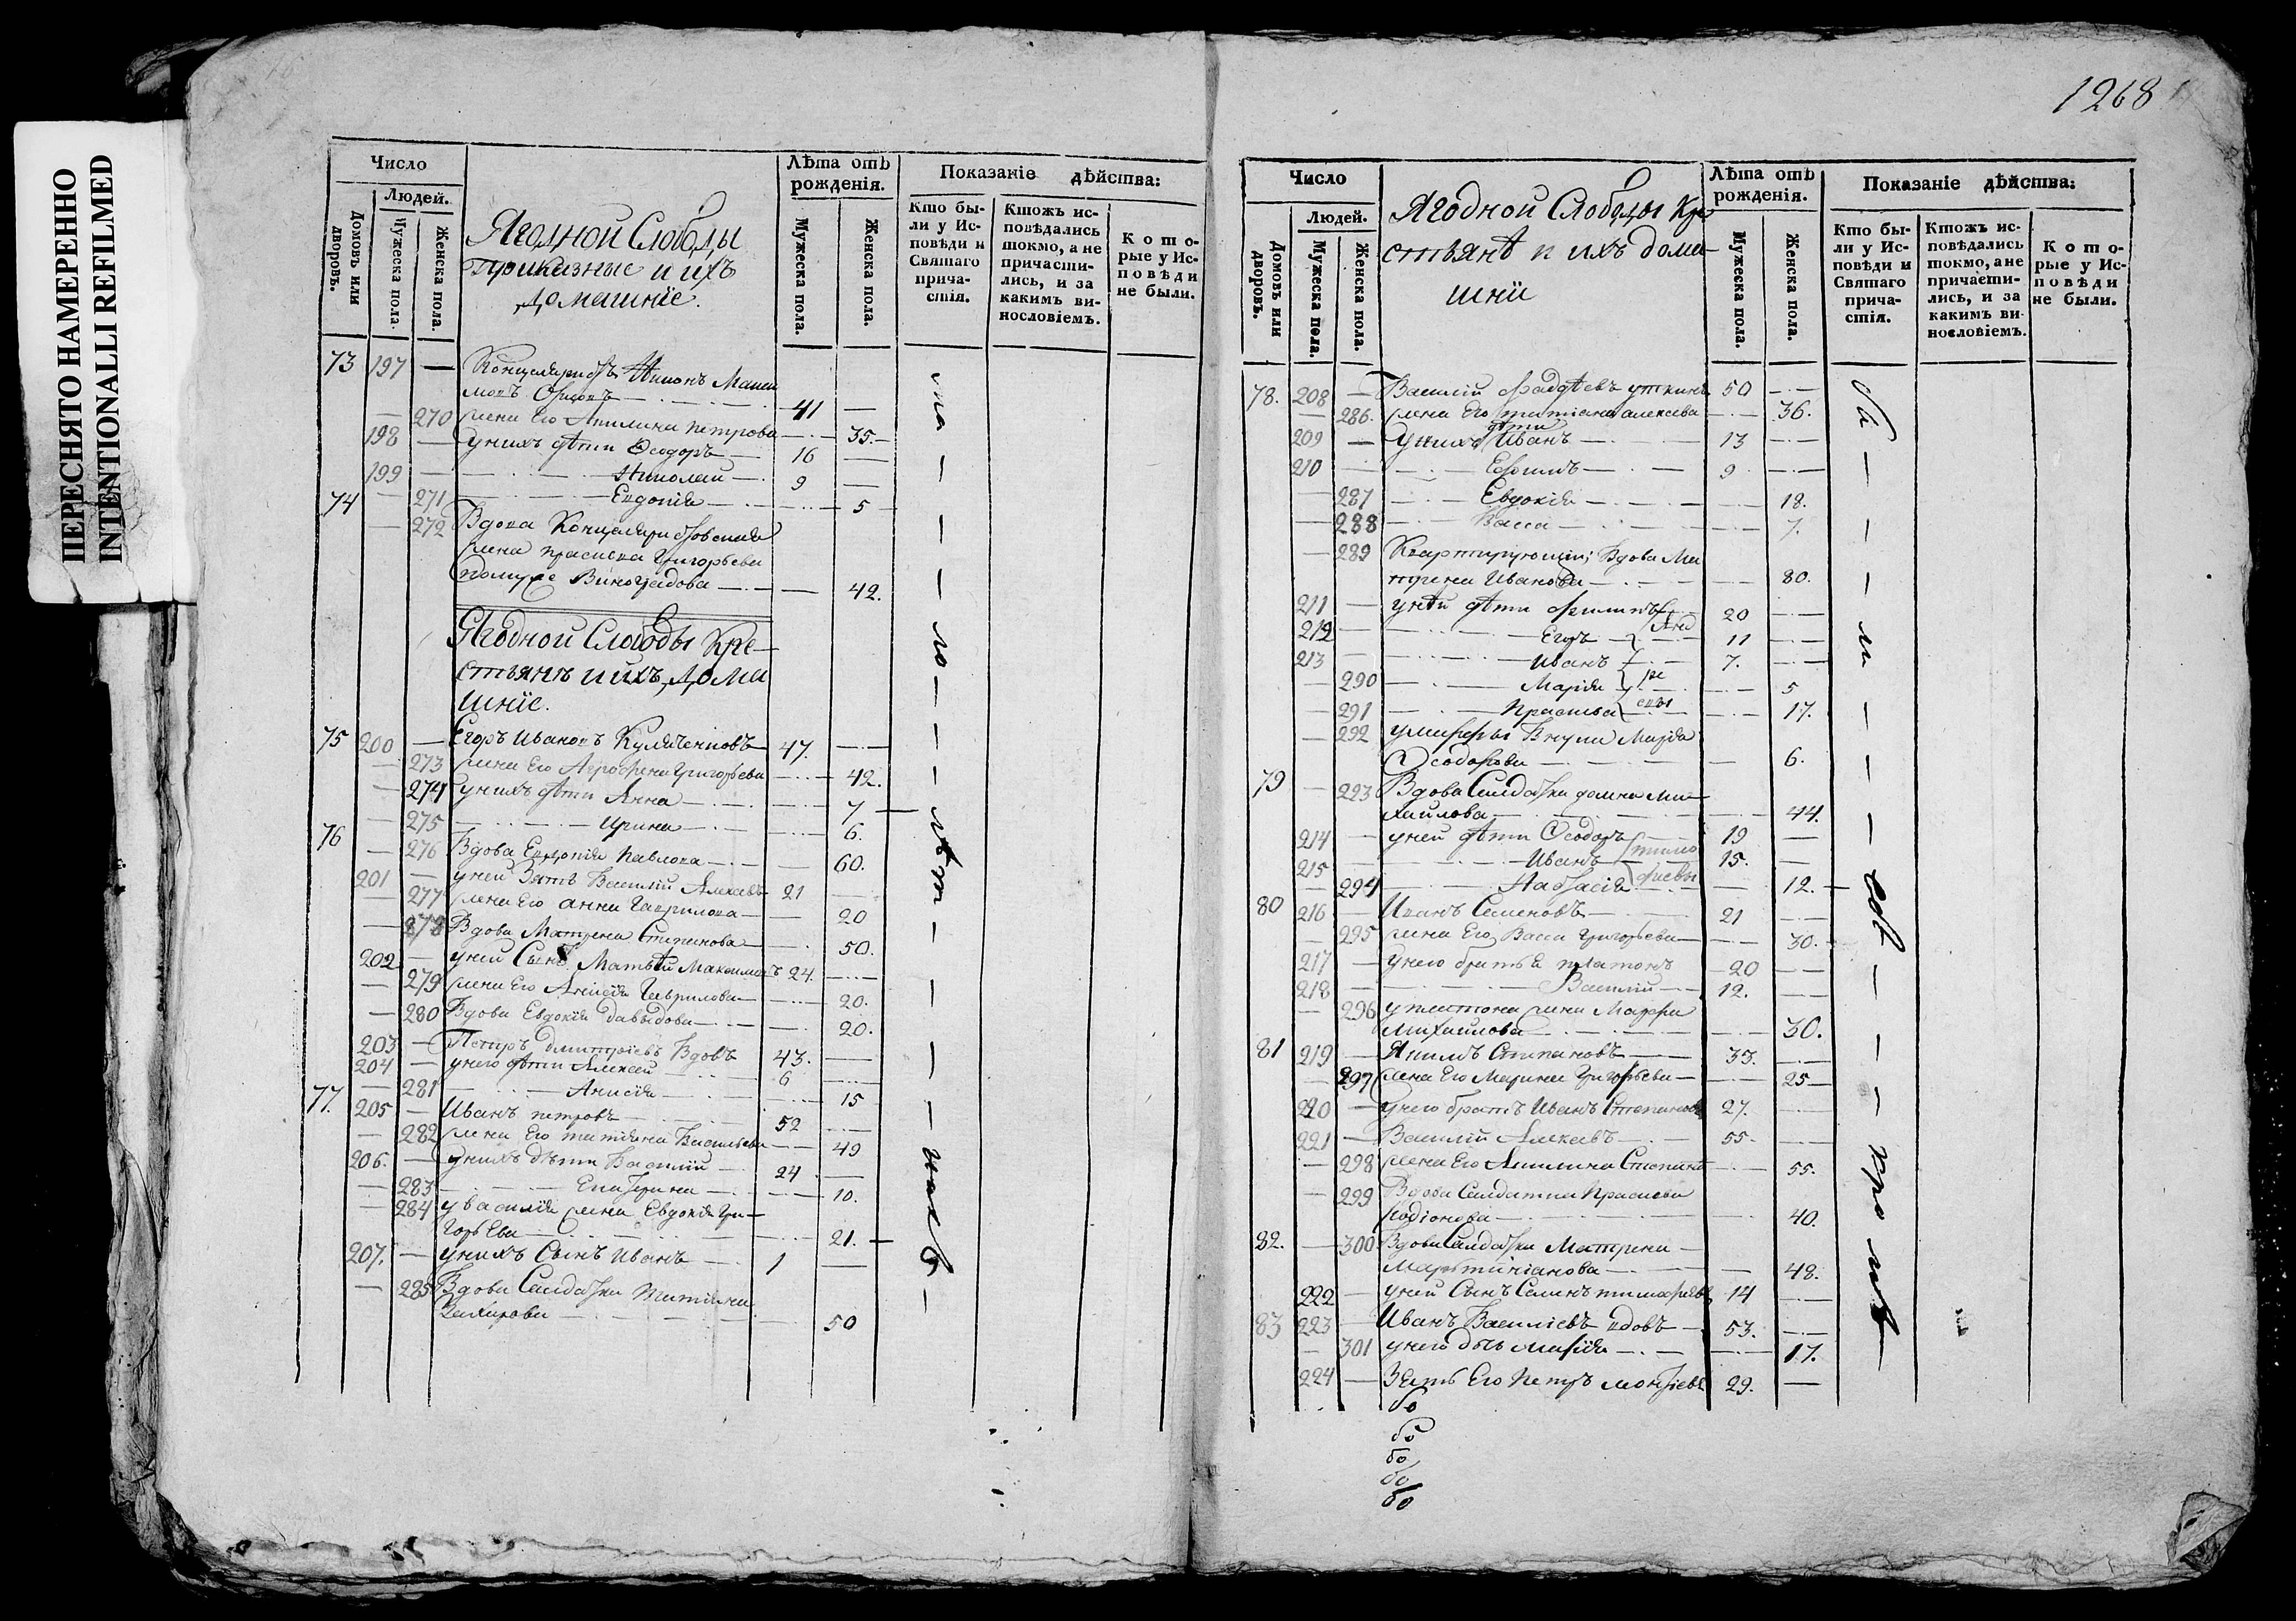 ПЕРЕСНЯТО НАМЕРЕННО
INTENTIONALLI REFILMED
Число
Людей.
Домовъ или дворовъ.
Мужеска пола.
Женска пола.
Ягодной Слободы
приказные и ихъ
домашнїе.
Лѣта отъ рожденія.
Мужеска пола.
Женска пола.
Показаніе дѣйства:
Кто были у Исповѣди и Святаго причастія.
Ктожъ исповѣдались токмо, а не причастились, и за какимъ винословіемъ.
Которые у Исповѣди не были.
73 197 —
41 —
— 270 жена Его Акилина петрова — 35.
198 — у нихъ дѣти Ѳеодоръ — 16 —
199 — Николай — 9 —
— 271 Евдокія — 5
74 — 272 Вдова
жена праскева Григорьева
Виноградова — 42.
Ягодной Слободы Кре-
стьянѣ и ихъ, дома
шнїе.
75 200 — Егоръ Ивановъ 47. —
— 273 жена Его Агрофена Григорьева — 42.
— 274 у нихъ дѣти Анна — 7
— 275 Ирина — 6.
76 — 276 Вдова Евдокія павлова — 60.
201 — у ней Зять Василій Алексѣевъ 21 —
— 277 жена Его анна Гаврилова — 20
— 278 Вдова Матрена Степанова — 50.
202 — у ней Сынъ Матвѣй Максимовъ 24. —
— 279 жена Его Анисія Гаврилова — 20.
— 280 Вдова Евдокія давыдова — 20.
203 — Петръ дмитріевъ Вдовъ 43. —
204 — у него дѣти Алексей 6 —
— 281 Анисія — 15
77. 205 — Иванъ петровъ 52 —
— 282 жена Его татіяна Васильева — 49
206. — у нихъ дѣти Василій 24 —
— 283 Екатерина — 10.
— 284 у василія жена Евдокія Гри-
горьева — 21.
207. — у нихъ Сынъ Иванъ 1 —
— 285 Вдова Салдатка Татіяна
Захарова — 50
1268
Число
Людей.
Домовъ или дворовъ.
Мужеска пола.
Женска пола.
Ягодной Слободы Кре
стьянѣ и ихъ дома-
шнїи
Лѣта отъ рожденія.
Мужеска пола.
Женска пола.
Показаніе дѣйства:
Кто были у Исповѣди и Святаго причастія.
Ктожъ исповѣдались токмо, а не причастились, и за какимъ винословіемъ.
Которые у Исповѣди не были.
78. 208 — Василій Фадѣевъ уткинъ 50 —
— 286. жена Его татіана алексева — 36.
209 — у нихъ дѣти Иванъ — 13 —
210 — Ефимъ — 9 —
— 287 Евдокія — 18.
— 288 Васса — 7.
— 289 Квартирующіи; Вдова Ма
трена Иванова — 80.
211 — у ней дѣти филипъ 20 —
212 — Егоръ 11 —
213 — Иванъ 7. —
— 290 Марія — 5
— 291 Прасковья — 17.
Анд
ре
евы
— 292 Внука Марія
Ѳеодорова — 6.
79 — 293 Вдова Салдатка домна Ми-
хайлова — 44.
214 — у ней дѣти Ѳеодоръ 19 —
215 — Иванъ 15. —
— 294 Настасія — 12.
тимо
феевы
80 216 — Иванъ Семеновъ — 21 —
— 295 жена Его Васса Григорьева — 30.
217 — у него братья платонъ 20 —
218 — Василій 12. —
— 296 у платона жена Марфа
Михайлова — 30.
81 219 — Якимъ Степановъ — 33. —
— 297 жена Его Марина Григорьева — 25
220 — у него братъ Иванъ Степановъ 27. —
221 — Василій Алексѣевъ — 55. —
— 298 жена Его Акилина Степано — 55.
— 299 Вдова Салдатка Праскева
Родіонова — 40.
82. — 300 Вдова Салдатка Матрена —
Мартиніанова — 48.
222 — у ней Сынъ Семенъ тимофеевъ 14 —
83 223 — Иванъ Василіевъ вдовъ 53. —
— 301 у него дочь марія — 17.
224 — Зять Его петръ 29. —
бо
бо
бо
бо
бо